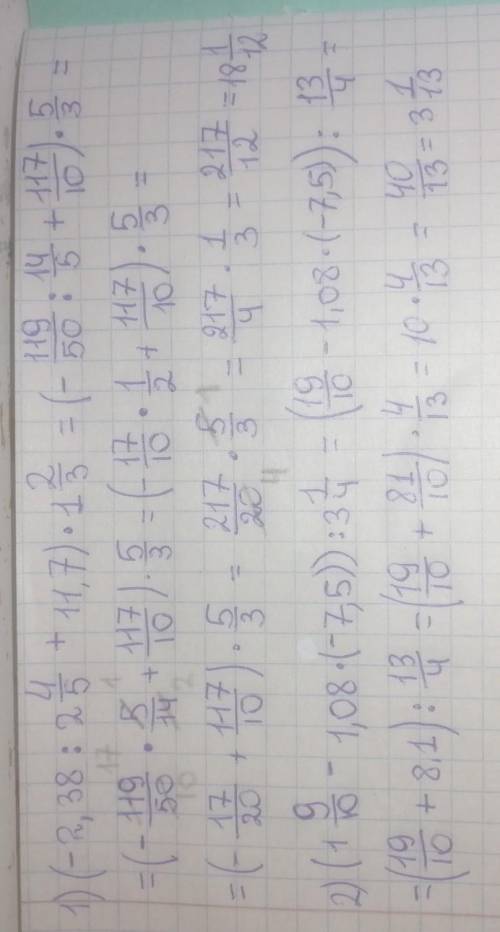 1) (-2,38 : 2 4/5 + 11,7) · 1 2/3 = (- 119/50 : 14/5 + 117/10) · 5/3 =
= (- 119/50 · 5/14 + 117/10) · 5/3 = (- 17/10 · 1/2 + 117/10) · 5/3 =
= (- 17/20 + 117/10) · 5/3 = 217/20 · 5/3 = 217/4 · 1/3 = 217/12 = 18 1/12
2) (1 9/10 - 1,08 · (-7,5)) : 3 1/4 = (19/10 - 1,08 · (-7,5)) : 13/4 =
= (19/10 + 8,1) : 13/4 = (19/10 + 81/10) · 4/13 = 10 · 4/13 = 40/13 = 3 1/13